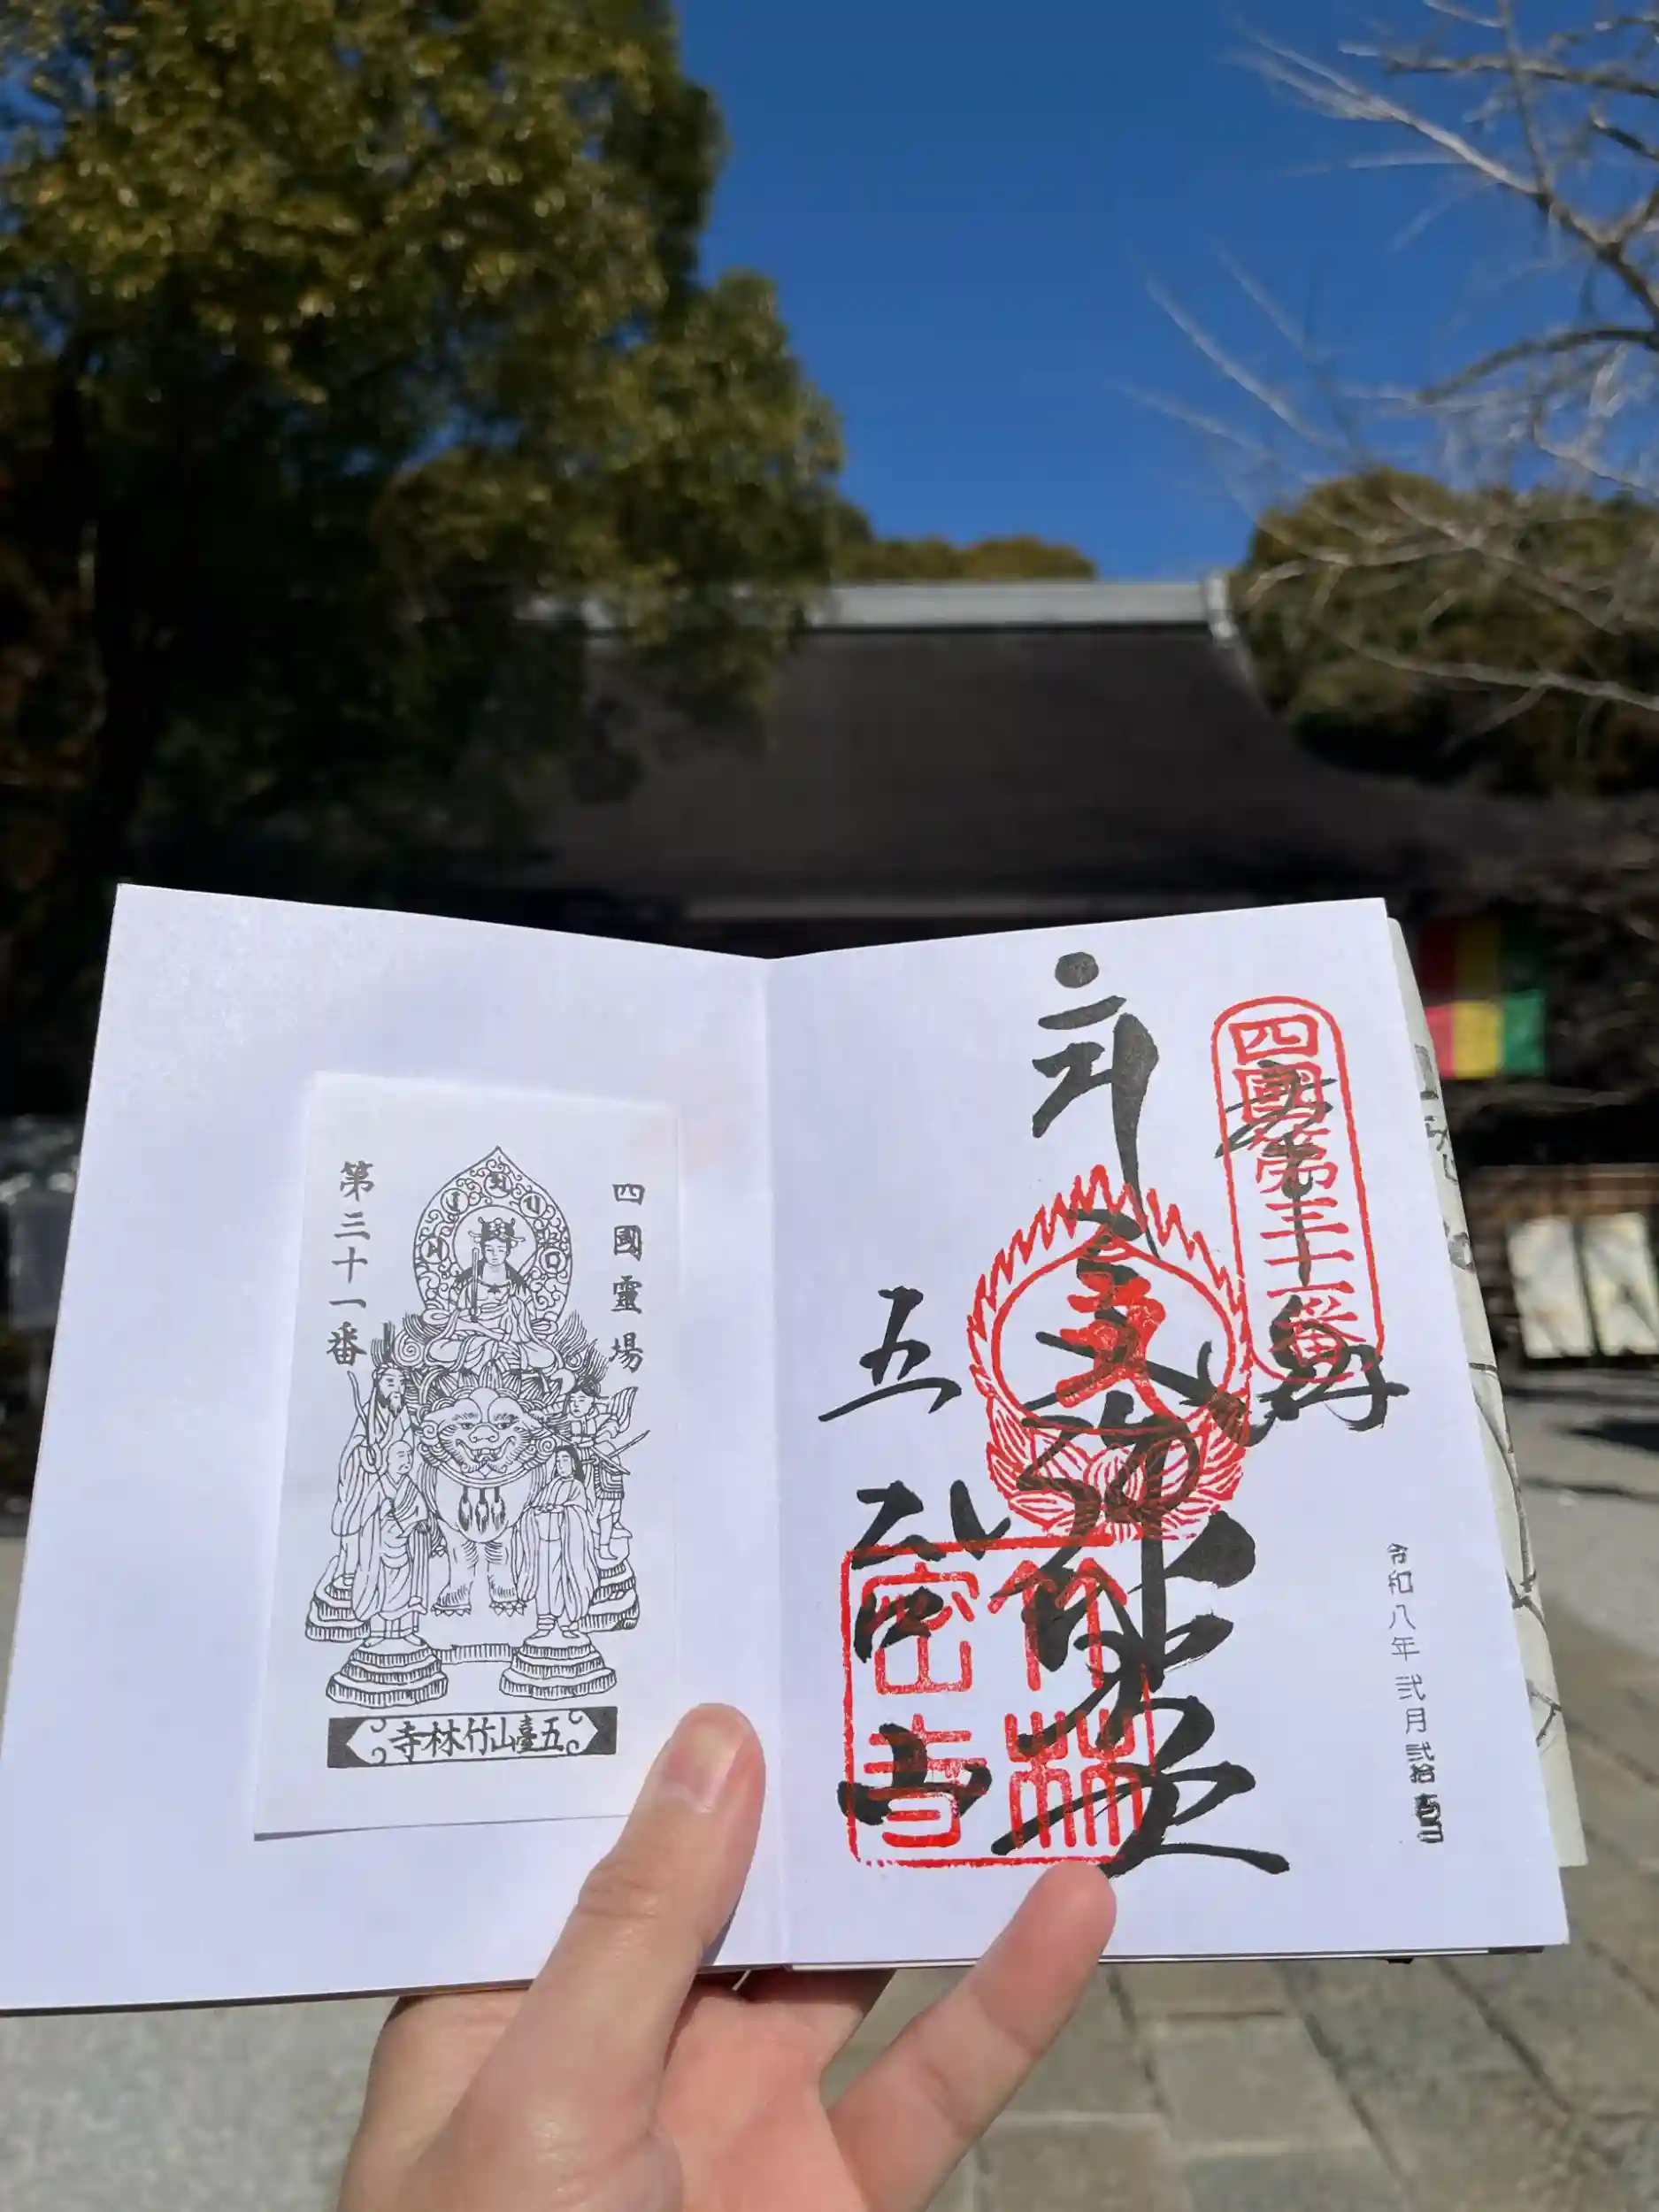 四國第三十一番
奉拝
令和八年弐月弐拾
文殊
五
竹林
密寺
四國靈場
第三十一番
五臺山竹林寺